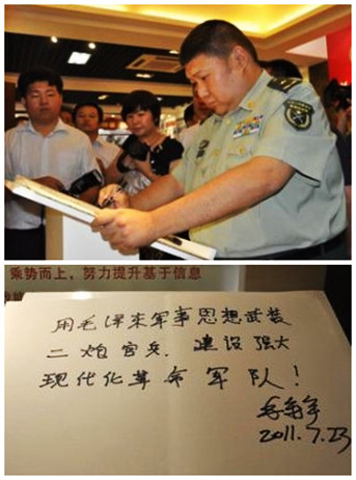 乘势而上，努力提升基于信息
用毛泽东军事思想武装
二炮官兵，建设强大
现代化革命军队！
2011.7.23